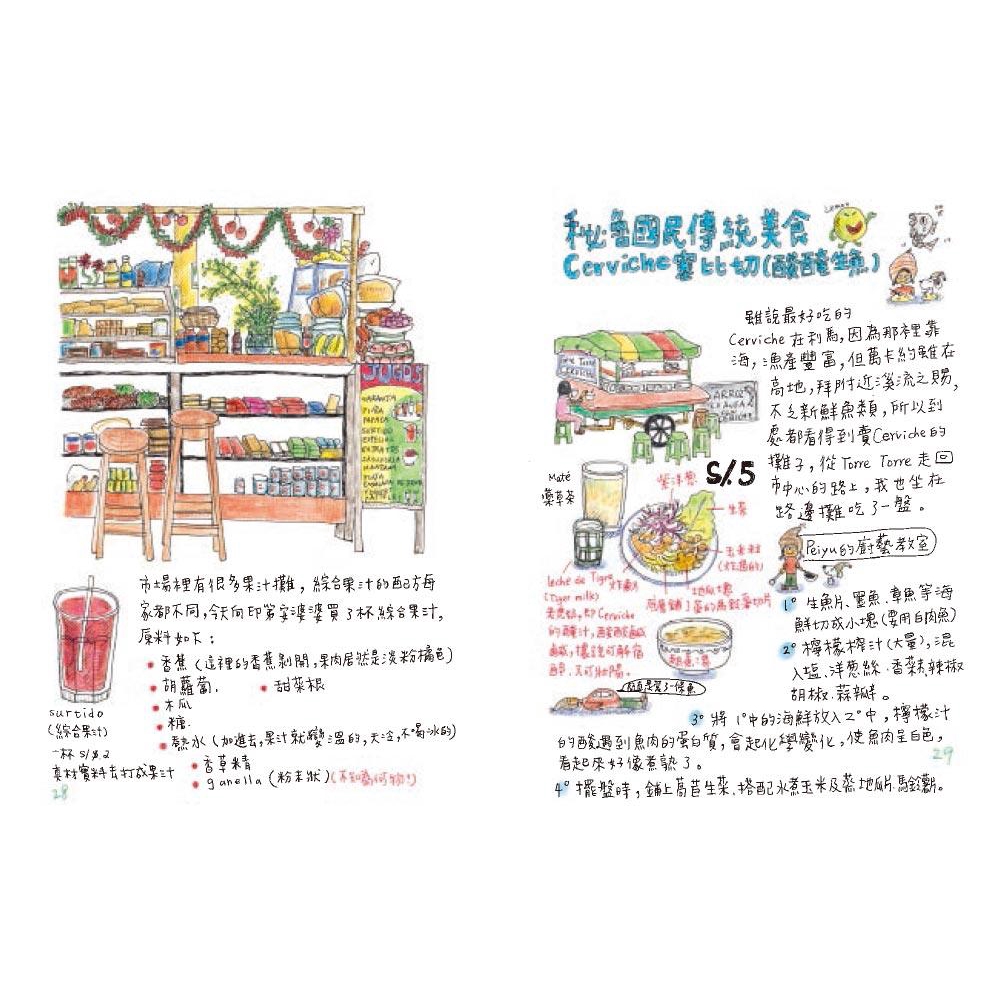 JUGOS
NARANJA
PIÑA
PAPAYA
SURTIDO
ESPECIAL
EXTRACTO
ZANAHORIA
MANZANA
市場裡有很多果汁攤，綜合果汁的配方每
家都不同，今天向印第安婆婆買了杯綜合果汁，
原料如下：
香蕉（這裡的香蕉剝開，果肉居然是淡粉橘色）
胡蘿蔔. 甜菜根
木瓜
糖.
熱水（加進去，果汁就變溫的，天冷，不喝冰的）
香草精
ganella（粉末狀）（不知為何物！）
surtido
（綜合果汁）
一杯 S/.2
真材實料去打成果汁
28
秘魯國民傳統美食
Cerviche塞比切（酸醃生魚）
Lemon
雖說最好吃的
Cerviche在利馬，因為那裡靠
海，漁產豐富，但萬卡約雖在
高地，拜附近溪流之賜，
不乏新鮮魚類，所以到
處都看得到賣Cerviche的
攤子，從Torre Torre走回
市中心的路上，我也坐在
路邊攤吃了一盤。
Torre Torre
CERVICHE
ARROZ
S/.5
Maté
藥草茶
紫洋蔥
生菜
玉米粒
（炸過的）
地瓜塊
底層鋪了蛋的馬鈴薯切片
炸魷
leche de Tigre
(Tiger milk)
老虎奶，即Cerviche
的醃汁，酸酸鹹
鹹，據說可解宿
醉，又可壯陽。
熱魚湯
Peiyu的廚藝教室
1° 生魚片、墨魚、章魚等海
鮮切成小塊（要用白肉魚）
2° 檸檬榨汁（大量），混
入塩、洋蔥絲、香菜、辣椒
胡椒、蒜瓣。
3° 將1°中的海鮮放入2°中，檸檬汁
的酸遇到魚肉的蛋白質，會起化學變化，使魚肉呈白色，
看起來好像煮熟了。
4° 擺盤時，鋪上萵苣生菜、搭配水煮玉米及蒸地瓜、馬鈴薯。
29